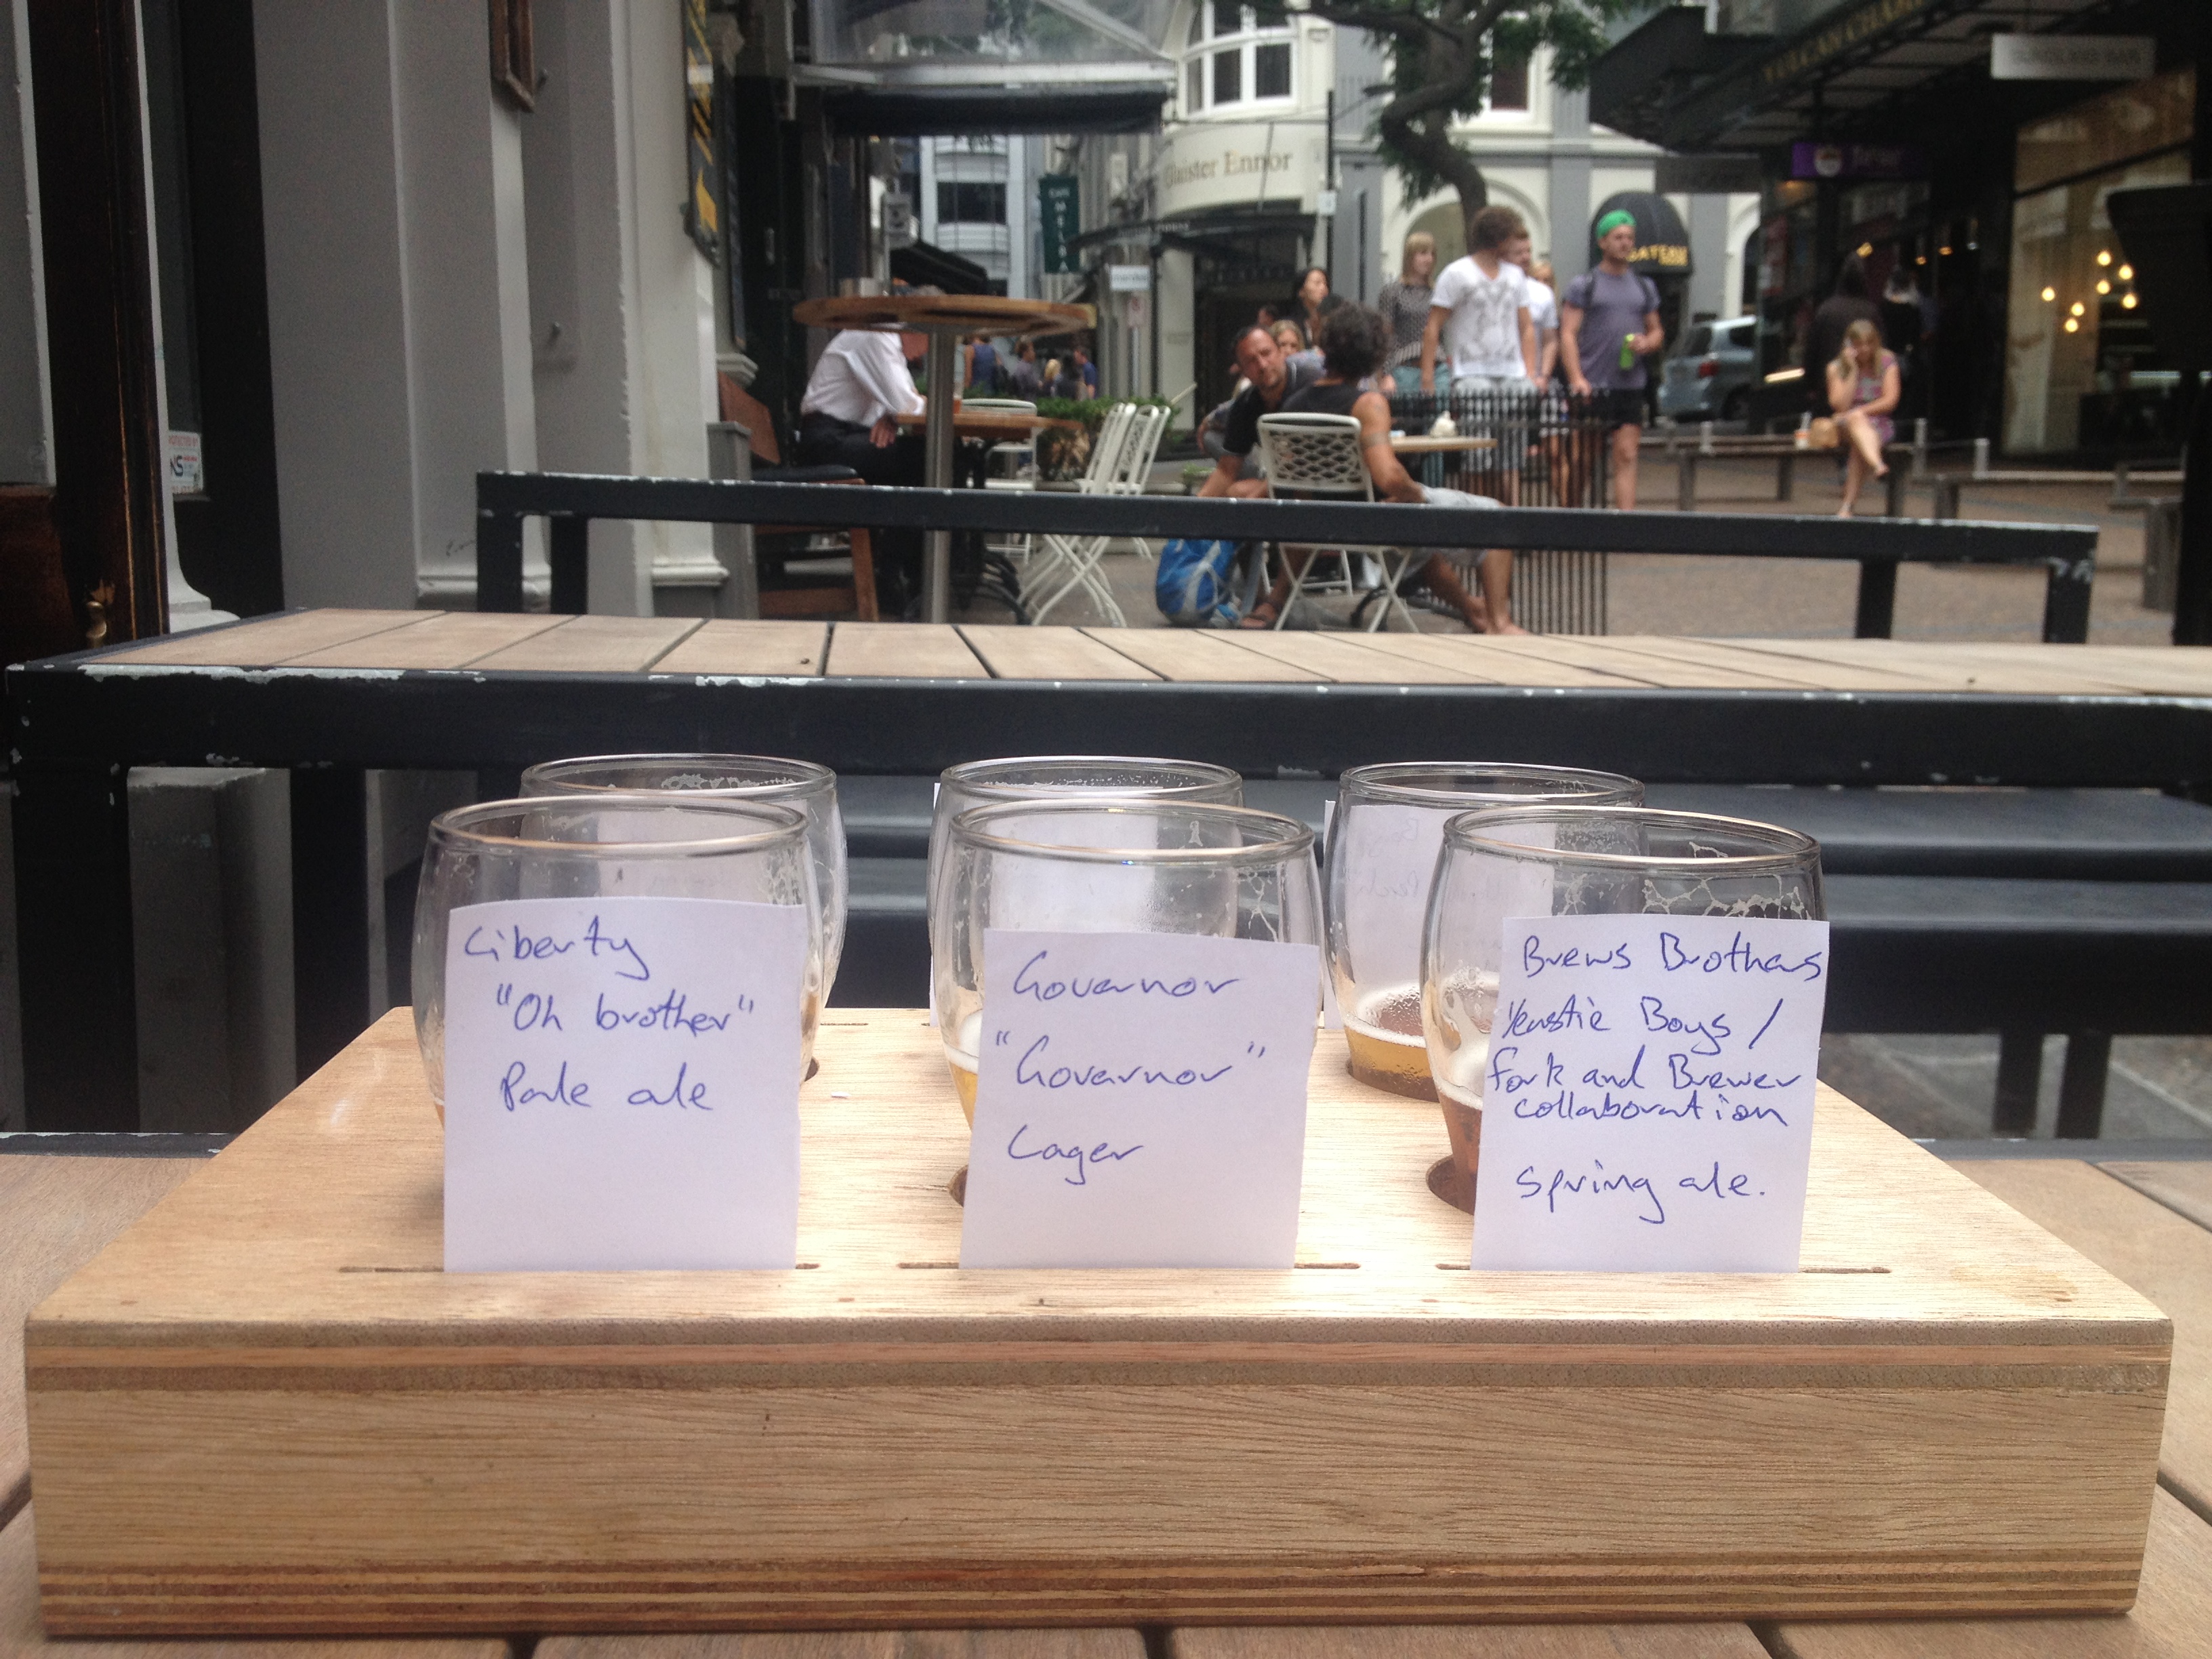 VULCAN
Glaister Ennor
GATEAU
Liberty
"Oh brother"
Pale ale
Governor
"Governor"
Lager
Brews Brothers
Yeastie Boys /
fork and Brewer
collaboration
Spring ale.